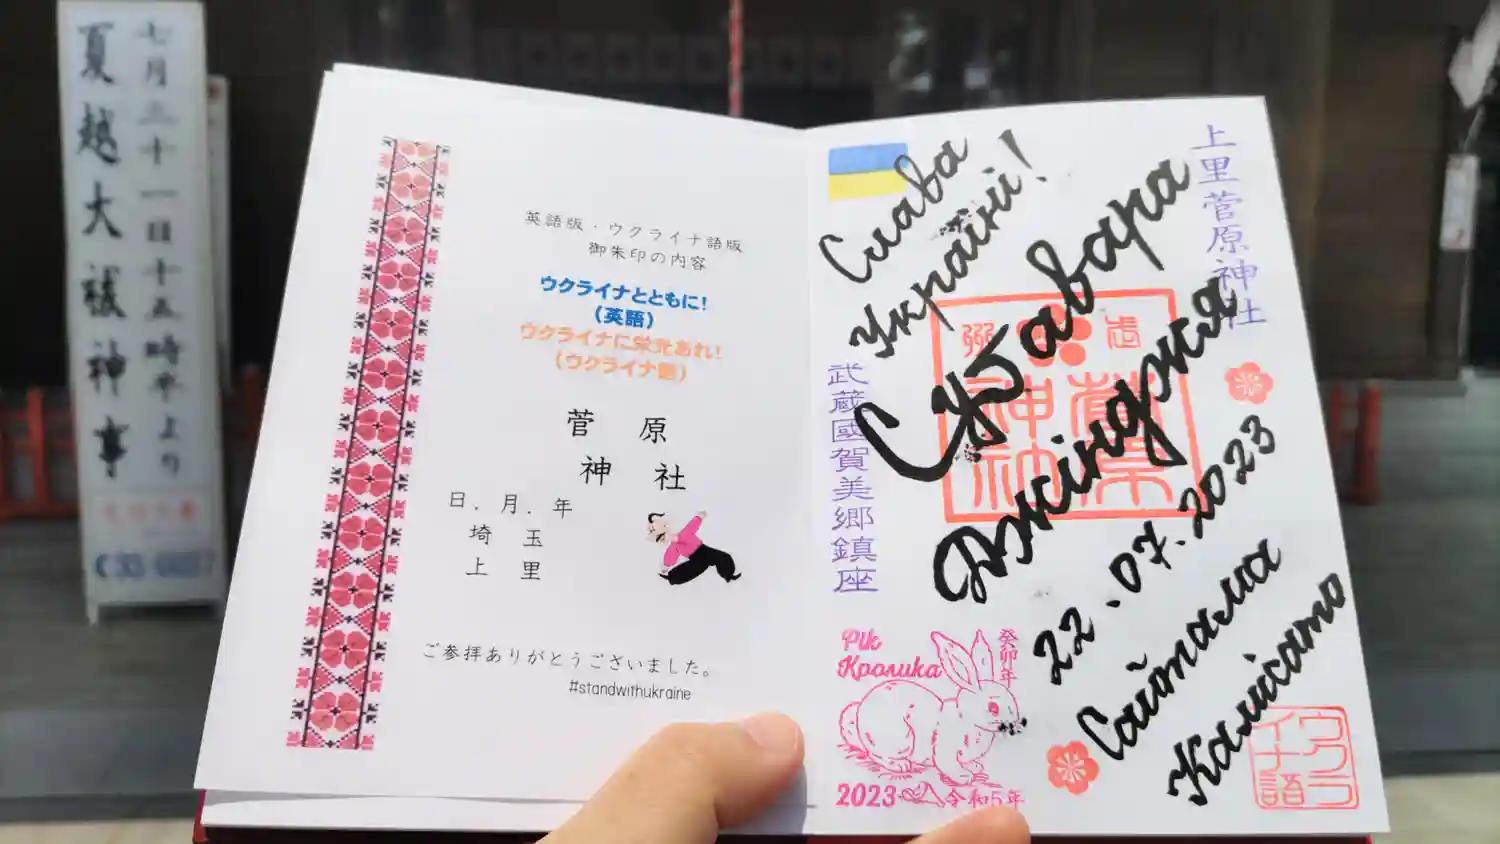 七月三十一日十五時半より
夏越大祓神事
英語版・ウクライナ語版
御朱印の内容
ウクライナとともに!
(英語)
ウクライナに栄光あれ!
(ウクライナ語)
菅原
神社
日.月.年
埼玉
上里
ご参拝ありがとうございました。
#standwithukraine
上里菅原神社
Слава
Україні!
Суґавара
Джінджя
22.07.2023
Сайтама
Камісато
武蔵國賀美郷鎮座
Рік
Кролика
癸卯年
2023
令和5年
ウクライナ語